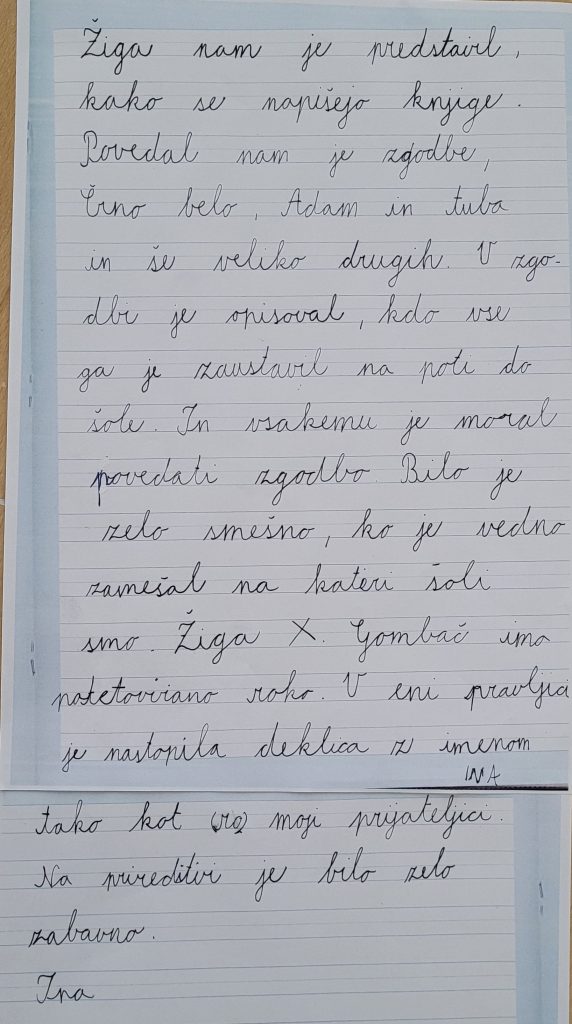 Žiga nam je predstavil,
kako se napišejo knjige.
Povedal nam je zgodbe,
Črno belo, Adam in tuba
in še veliko drugih. V zgo-
dbi je opisoval, kdo vse
ga je zaustavil na poti do
šole. In vsakemu je moral
povedati zgodbo. Bilo je
zelo smešno, ko je vedno
zamešal na kateri šoli
smo. Žiga X. Gombač ima
potetovirano roko. V eni pravljici
je nastopila deklica z imenom
IMA
tako kot moji prijateljici.
Na prireditvi je bilo zelo
zabavno.
Ina